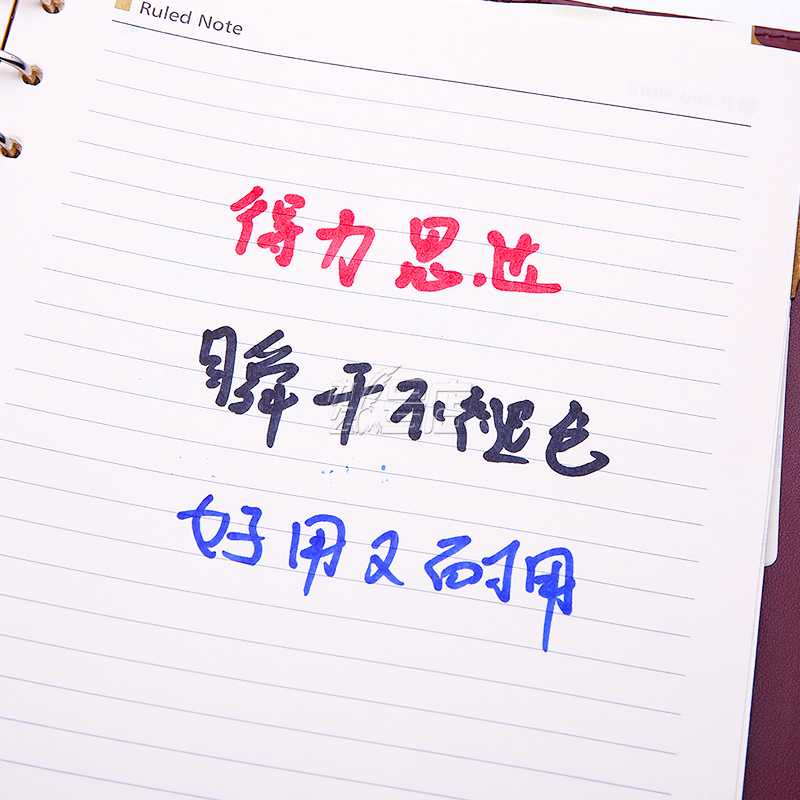 Ruled Note
得力思达
瞬干不褪色
好用又耐用